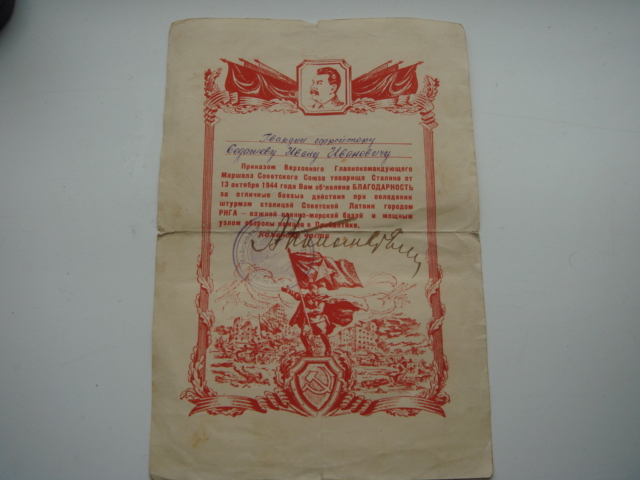 Гвардии ефрейтору
Ивану Ивановичу
Приказом Верховного Главнокомандующего
Маршала Советского Союза товарища Сталина от
13 октября 1944 года Вам об'явлена БЛАГОДАРНОСТЬ
за отличные боевые действия при овладении
штурмом столицей Советской Латвии городом
РИГА – важной военно-морской базой и мощным
узлом обороны немцев в Прибалтике.
Командир части